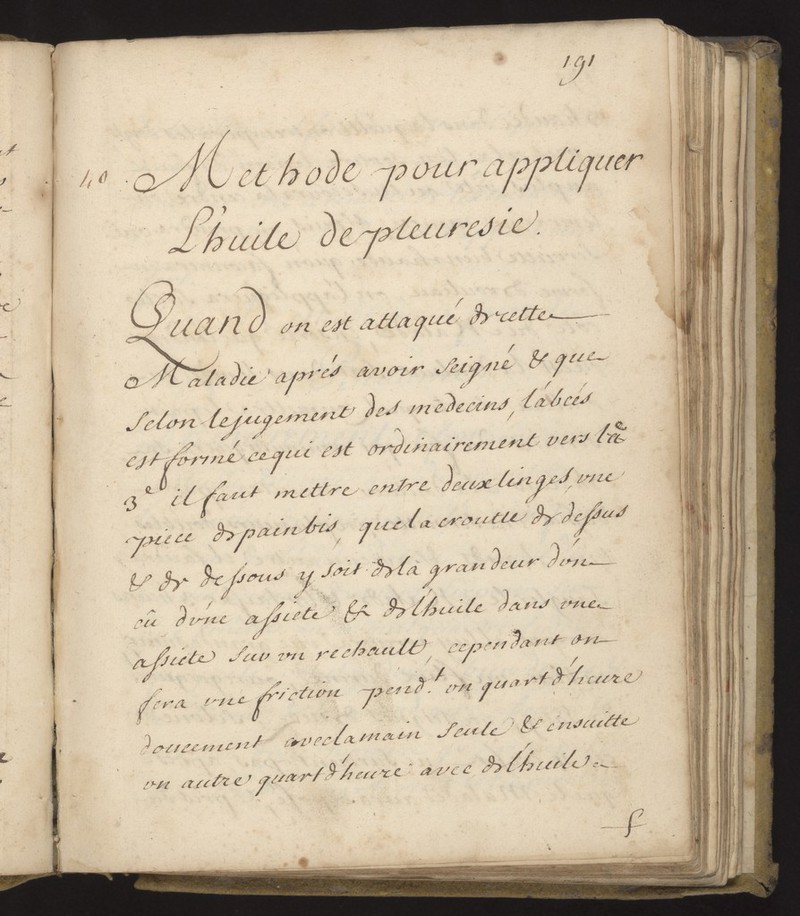 191
40. Methode pour appliquer
L'huile de pleuresie.
Quand on est attaqué de cette
Maladie aprés avoir seigné & que
selon le jugement des medecins, l'abcés
est formé ce qui est ordinairement vers la
3e il faut mettre entre deux linges, vne
piece de pain bis, que la croutte de dessus
& de dessous y soit de la grandeur d'un
cû d'vne assiete & de l'huile dans vne
assiete sur vn rechault, cependant on
fera vne friction pend.t vn quart d'heure
doucement avec la main seule & ensuitte
vn autre quart d'heure avec de l'huile